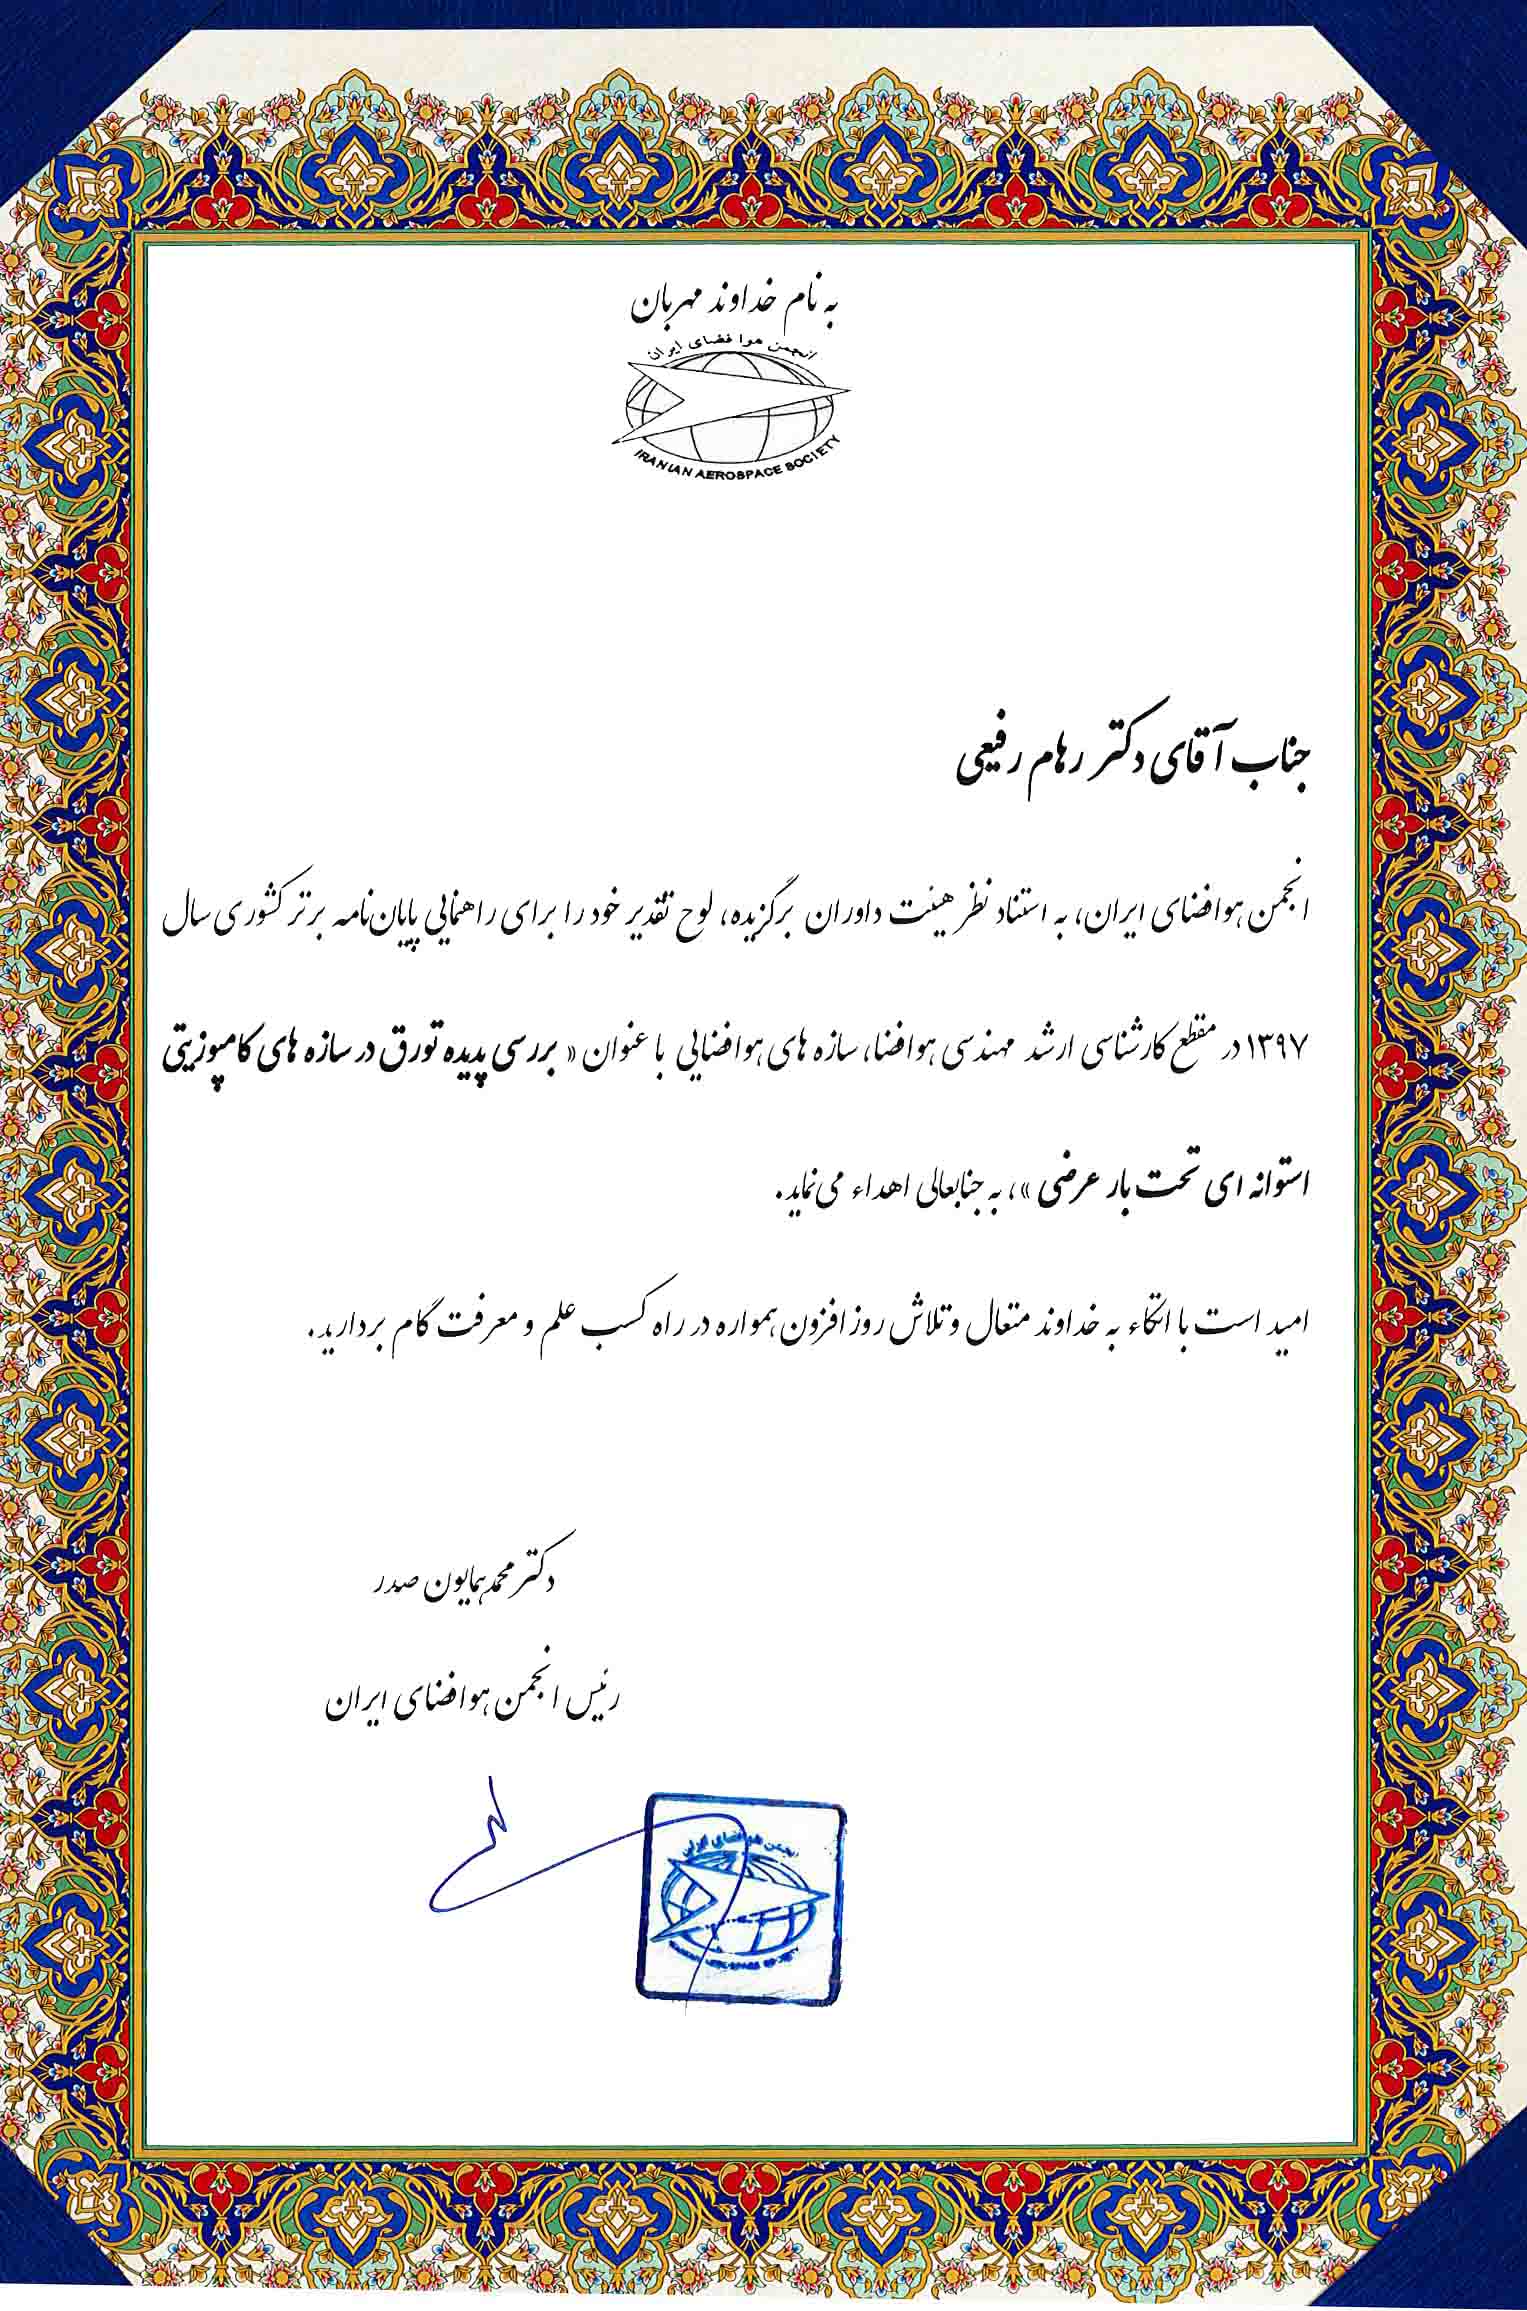 به نام خداوند مهربان
انجمن هوا فضای ایران
IRANIAN AEROSPACE SOCIETY
جناب آقای دکتر رهام رفیعی
انجمن هوافضای ایران، به استناد نظر هیئت داوران برگزیده، لوح تقدیر خود را برای راهنمایی پایان‌نامه برتر کشوری سال
۱۳۹۷ در مقطع کارشناسی ارشد مهندسی هوافضا، سازه های هوافضایی با عنوان « بررسی پدیده تورق در سازه های کامپوزیتی
استوانه ای تحت بار عرضی »، به جنابعالی اهداء می‌نماید.
امید است با اتکاء به خداوند متعال و تلاش روز افزون همواره در راه کسب علم و معرفت گام بردارید.
دکتر محمد همایون صدر
رئیس انجمن هوافضای ایران
انجمن هوا فضای ایران